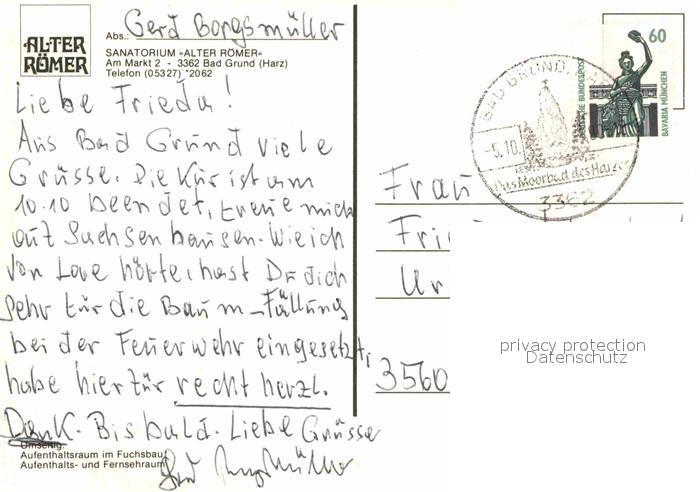 ALTER
RÖMER
Abs.: Gerd Borgsmüller
SANATORIUM »ALTER RÖMER«
Am Markt 2 - 3362 Bad Grund (Harz)
Telefon (05327) *2062
Liebe Frieda!
Aus Bad Grund viele
Grüsse. Die Kur ist am
10.10 beendet, freue mich
auf Sachsenhausen. Wie ich
von Love hörte, hast Du dich
sehr für die Baum-Fällung
bei der Feuerwehr eingesetzt,
habe hierfür recht herzl.
Dank. Bis bald. Liebe Grüsse
Gerd Borgsmüller
Umseitig:
Aufenthaltsraum im Fuchsbau
Aufenthalts- und Fernsehraum
60
DEUTSCHE BUNDESPOST
BAVARIA MÜNCHEN
BAD GRUND, HARZ
-5.10
Das Moorbad des Harzes
3362
Frau
Fri
Ur
3560
privacy protection
Datenschutz